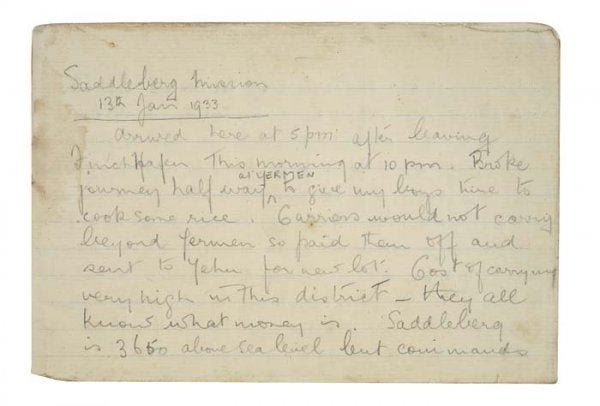 Saddleberg Mission
13th Jan 1933
Arrived here at 5 pm after leaving
Finchhafen This morning at 10 pm. Broke
journey half way at YERMEN to give my boys time to
cook some rice. Carriers would not carry
beyond Yermen so paid them off and
sent to for new lot. Cost of carrying
very high in this district – they all
know what money is. Saddleberg
is 3650 above sea level but commands